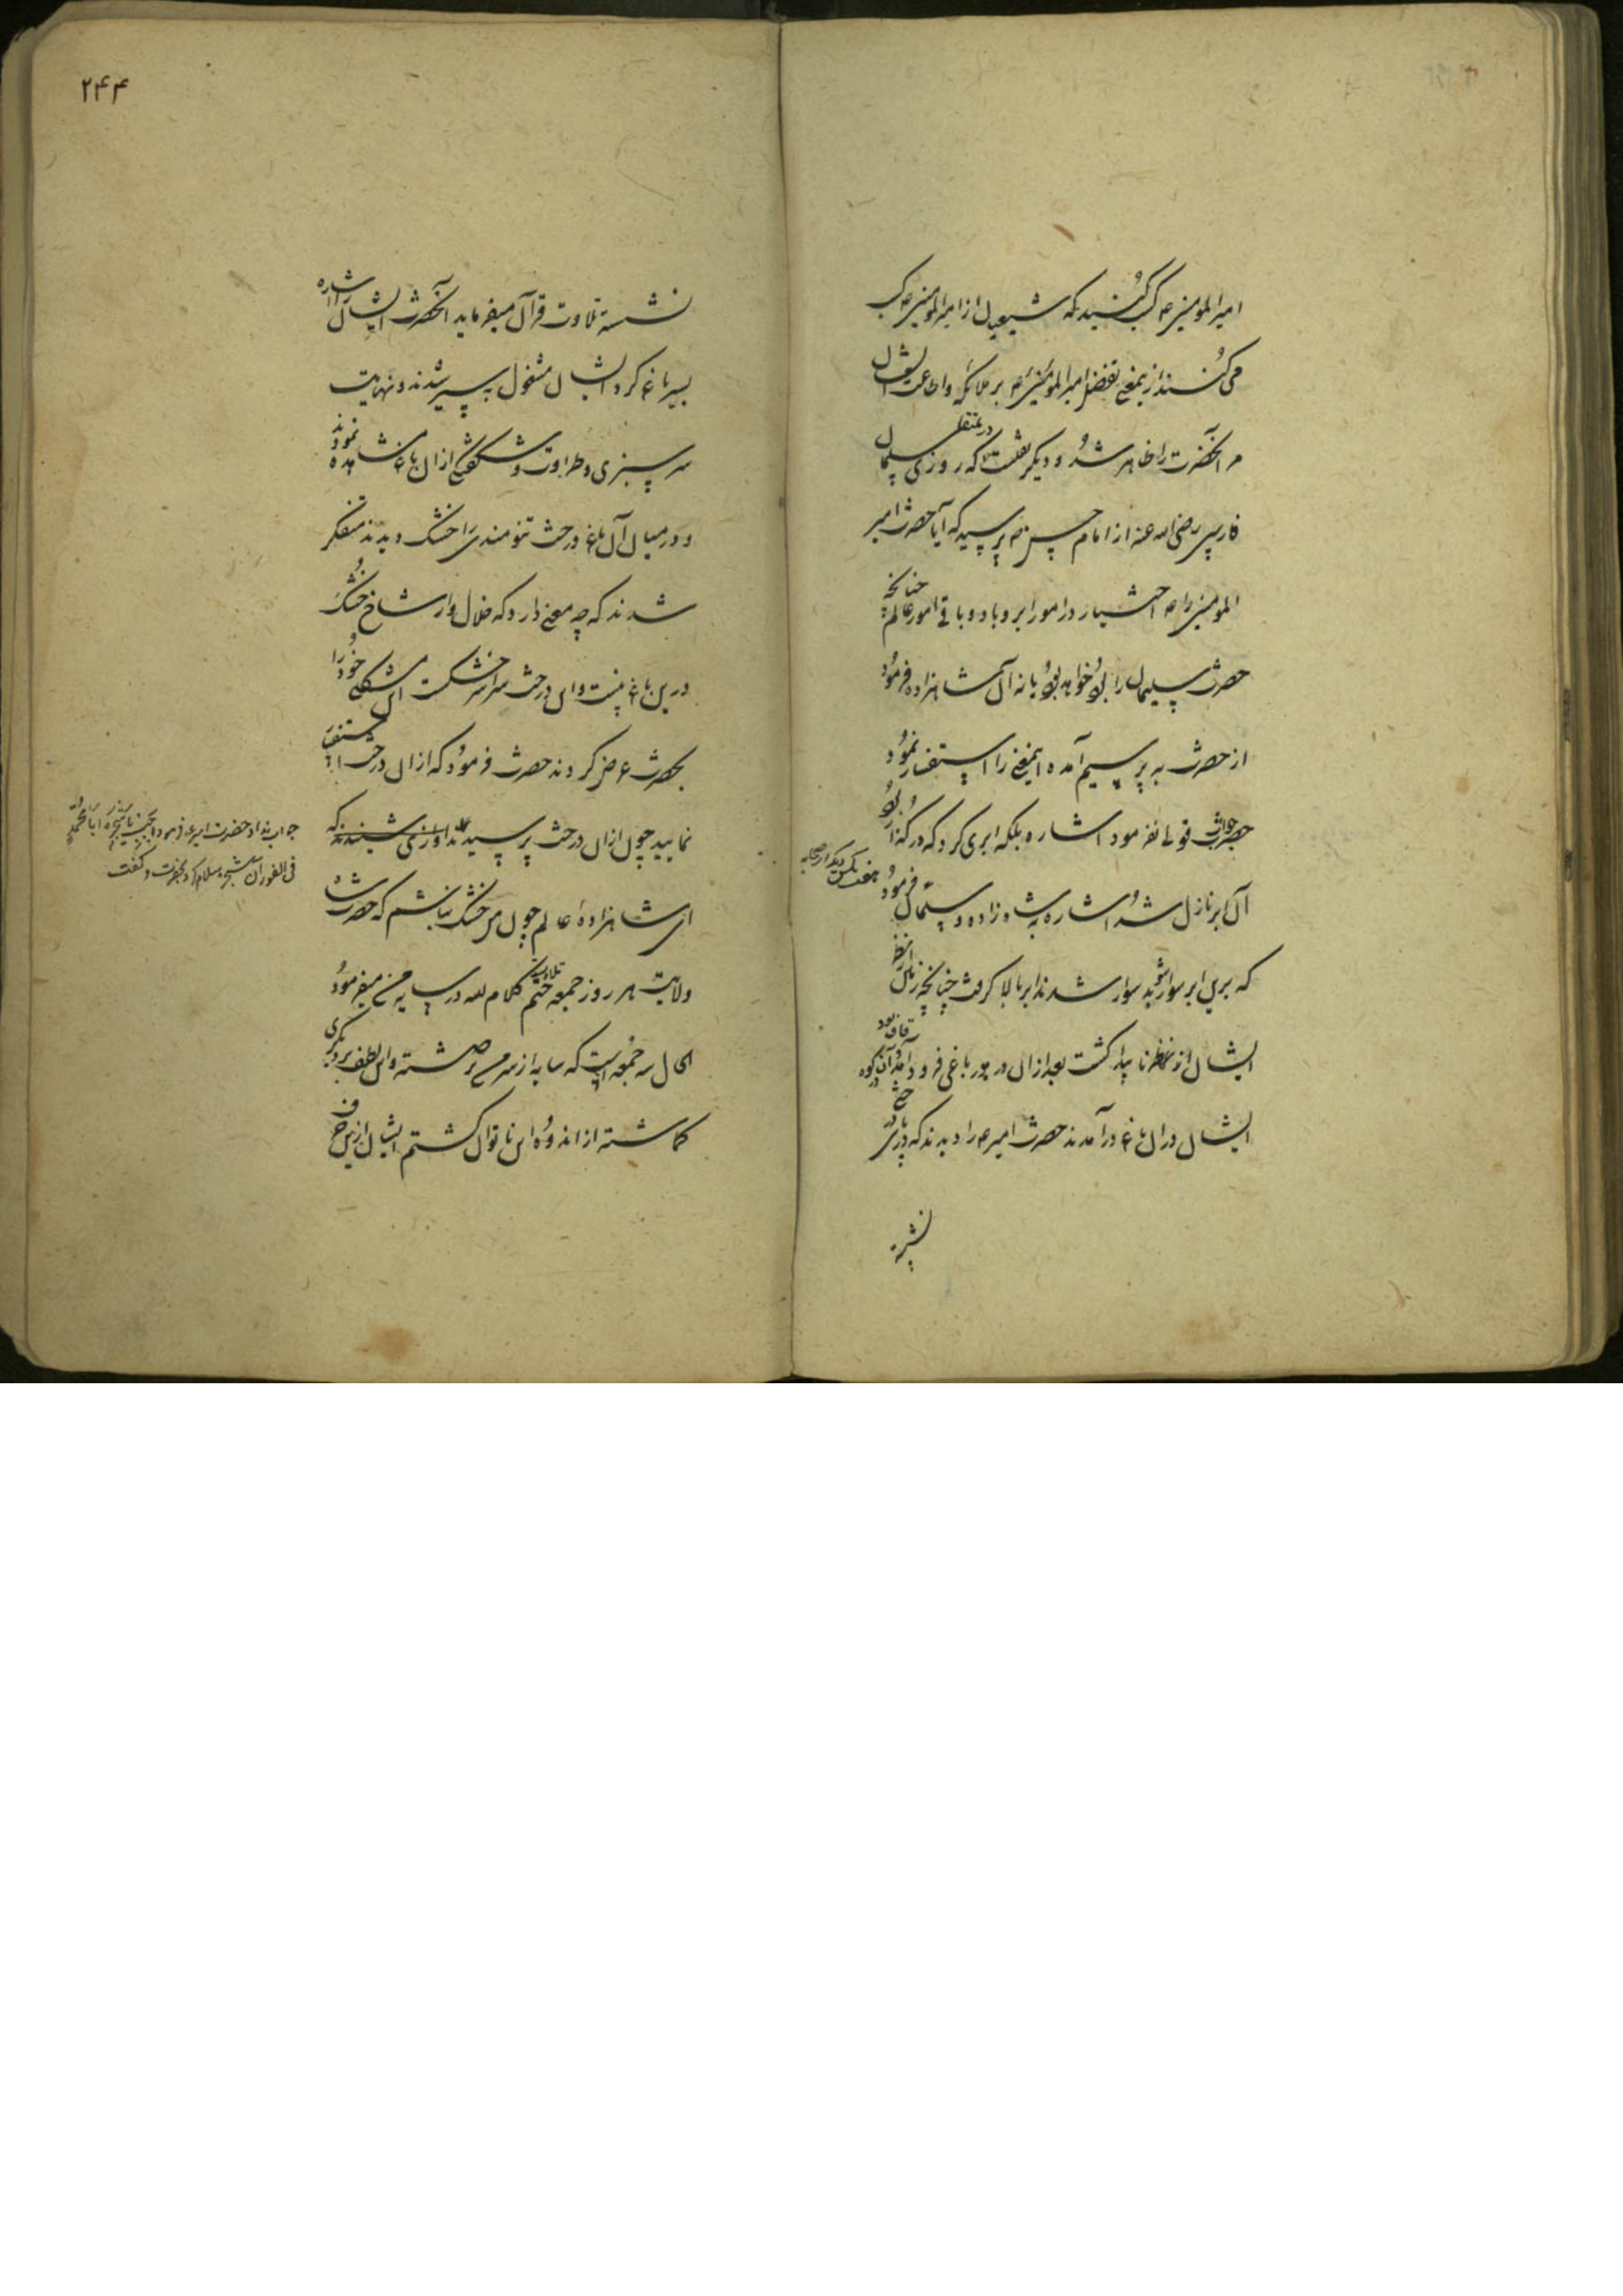 امیرالمؤمنین ع کسب کنید که شیعیان از امیرالمؤمنین ع کسب
می کنند از ینمعنی تفضل امیرالمؤمنین ع بر ملائکه و اطاعت ایشان
مر آنحضرت را ظاهر شد و دیگر در منقل نقلست که روزی سلمان
فارسی رضی الله عنه از امام حسن ع پرسید که آیا حضرت امیر
المومنین را ع اختیار در امور ابر و باد و باقی امور عالم چنانچه
حضرت سلیمان را بود خواهد بود یا نه آن شاهزاده فرمود
از حضرت به پرسیم آمده اینمعنی را استفسار نمود
حضرت جواب قولی نفرمود اشاره بلکه ابری کرد که در گذار بود
آن ابر نازل شد اشاره به شاه زاده و سلمان فرمود
که برین ابر سوار شوید سوار شدند ابر بالا گرفت چنانچه زمین از نظر
ایشان از نظر ناپیدا گشت بعد از آن در پور باغی فرود آمد آن کوه قاف بود
ایشان در آن باغ در آمدند حضرت امیر ع را دیدند که در پای درختی
نشسته
۲۴۴
نشسته تلاوت قرآن میفرماید آنحضرت ایشان را اشاره
بسیر باغ کرد ایشان مشغول به سیر شدند و نهایت
سر سبزی و طراوت و شگفتگی از آن باغ مشاهده نمودند
و در میان آن باغ درخت تنومندی را خشک دیدند متفکر
شدند که چه معنی دارد که خلال وار شاخ خشک
درین باغ نیست و این درخت سراسر خشکست این مشکل خود را
بحضرت عرض کردند حضرت فرمود که از آن درخت استفسار
نمایید چون از آن درخت پرسیدند آوازی شنیدند که
جواب نداد حضرت امیر ع فرمود اجیبی یا شجره ابا محمد
فی الفور آن شجره سلام کرد بحضرت و گفت
ای شاهزاده عالم چون من خشک نباشم که حضرت شاه
ولایت هر روز جمعه ختم تلاوت کلام الله در سایه من میفرمود
الحال سه جمعه است که سایه از سر من برداشته و این لطف بر دیگری
گماشته از اندوه این ناتوان گشتم ایشان ازین حرف